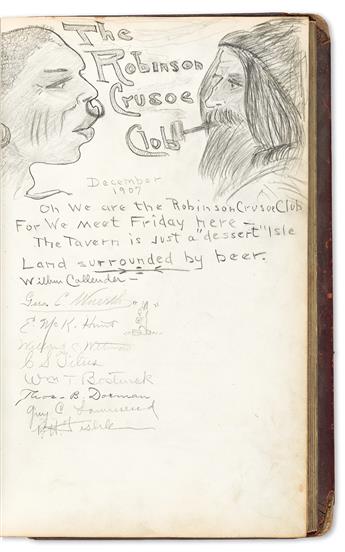 The
Robinson
Crusoe
Club
December
1907
Oh We are the Robinson Crusoe Club
For We meet Friday here –
The Tavern is just a "dessert" Isle
Land surrounded by beer.
Wilbur Callender –
Geo. C.
E. McK. Hunt
C S Titus
Wm T.
Thos – B. Dorman
Guy C. Townsend